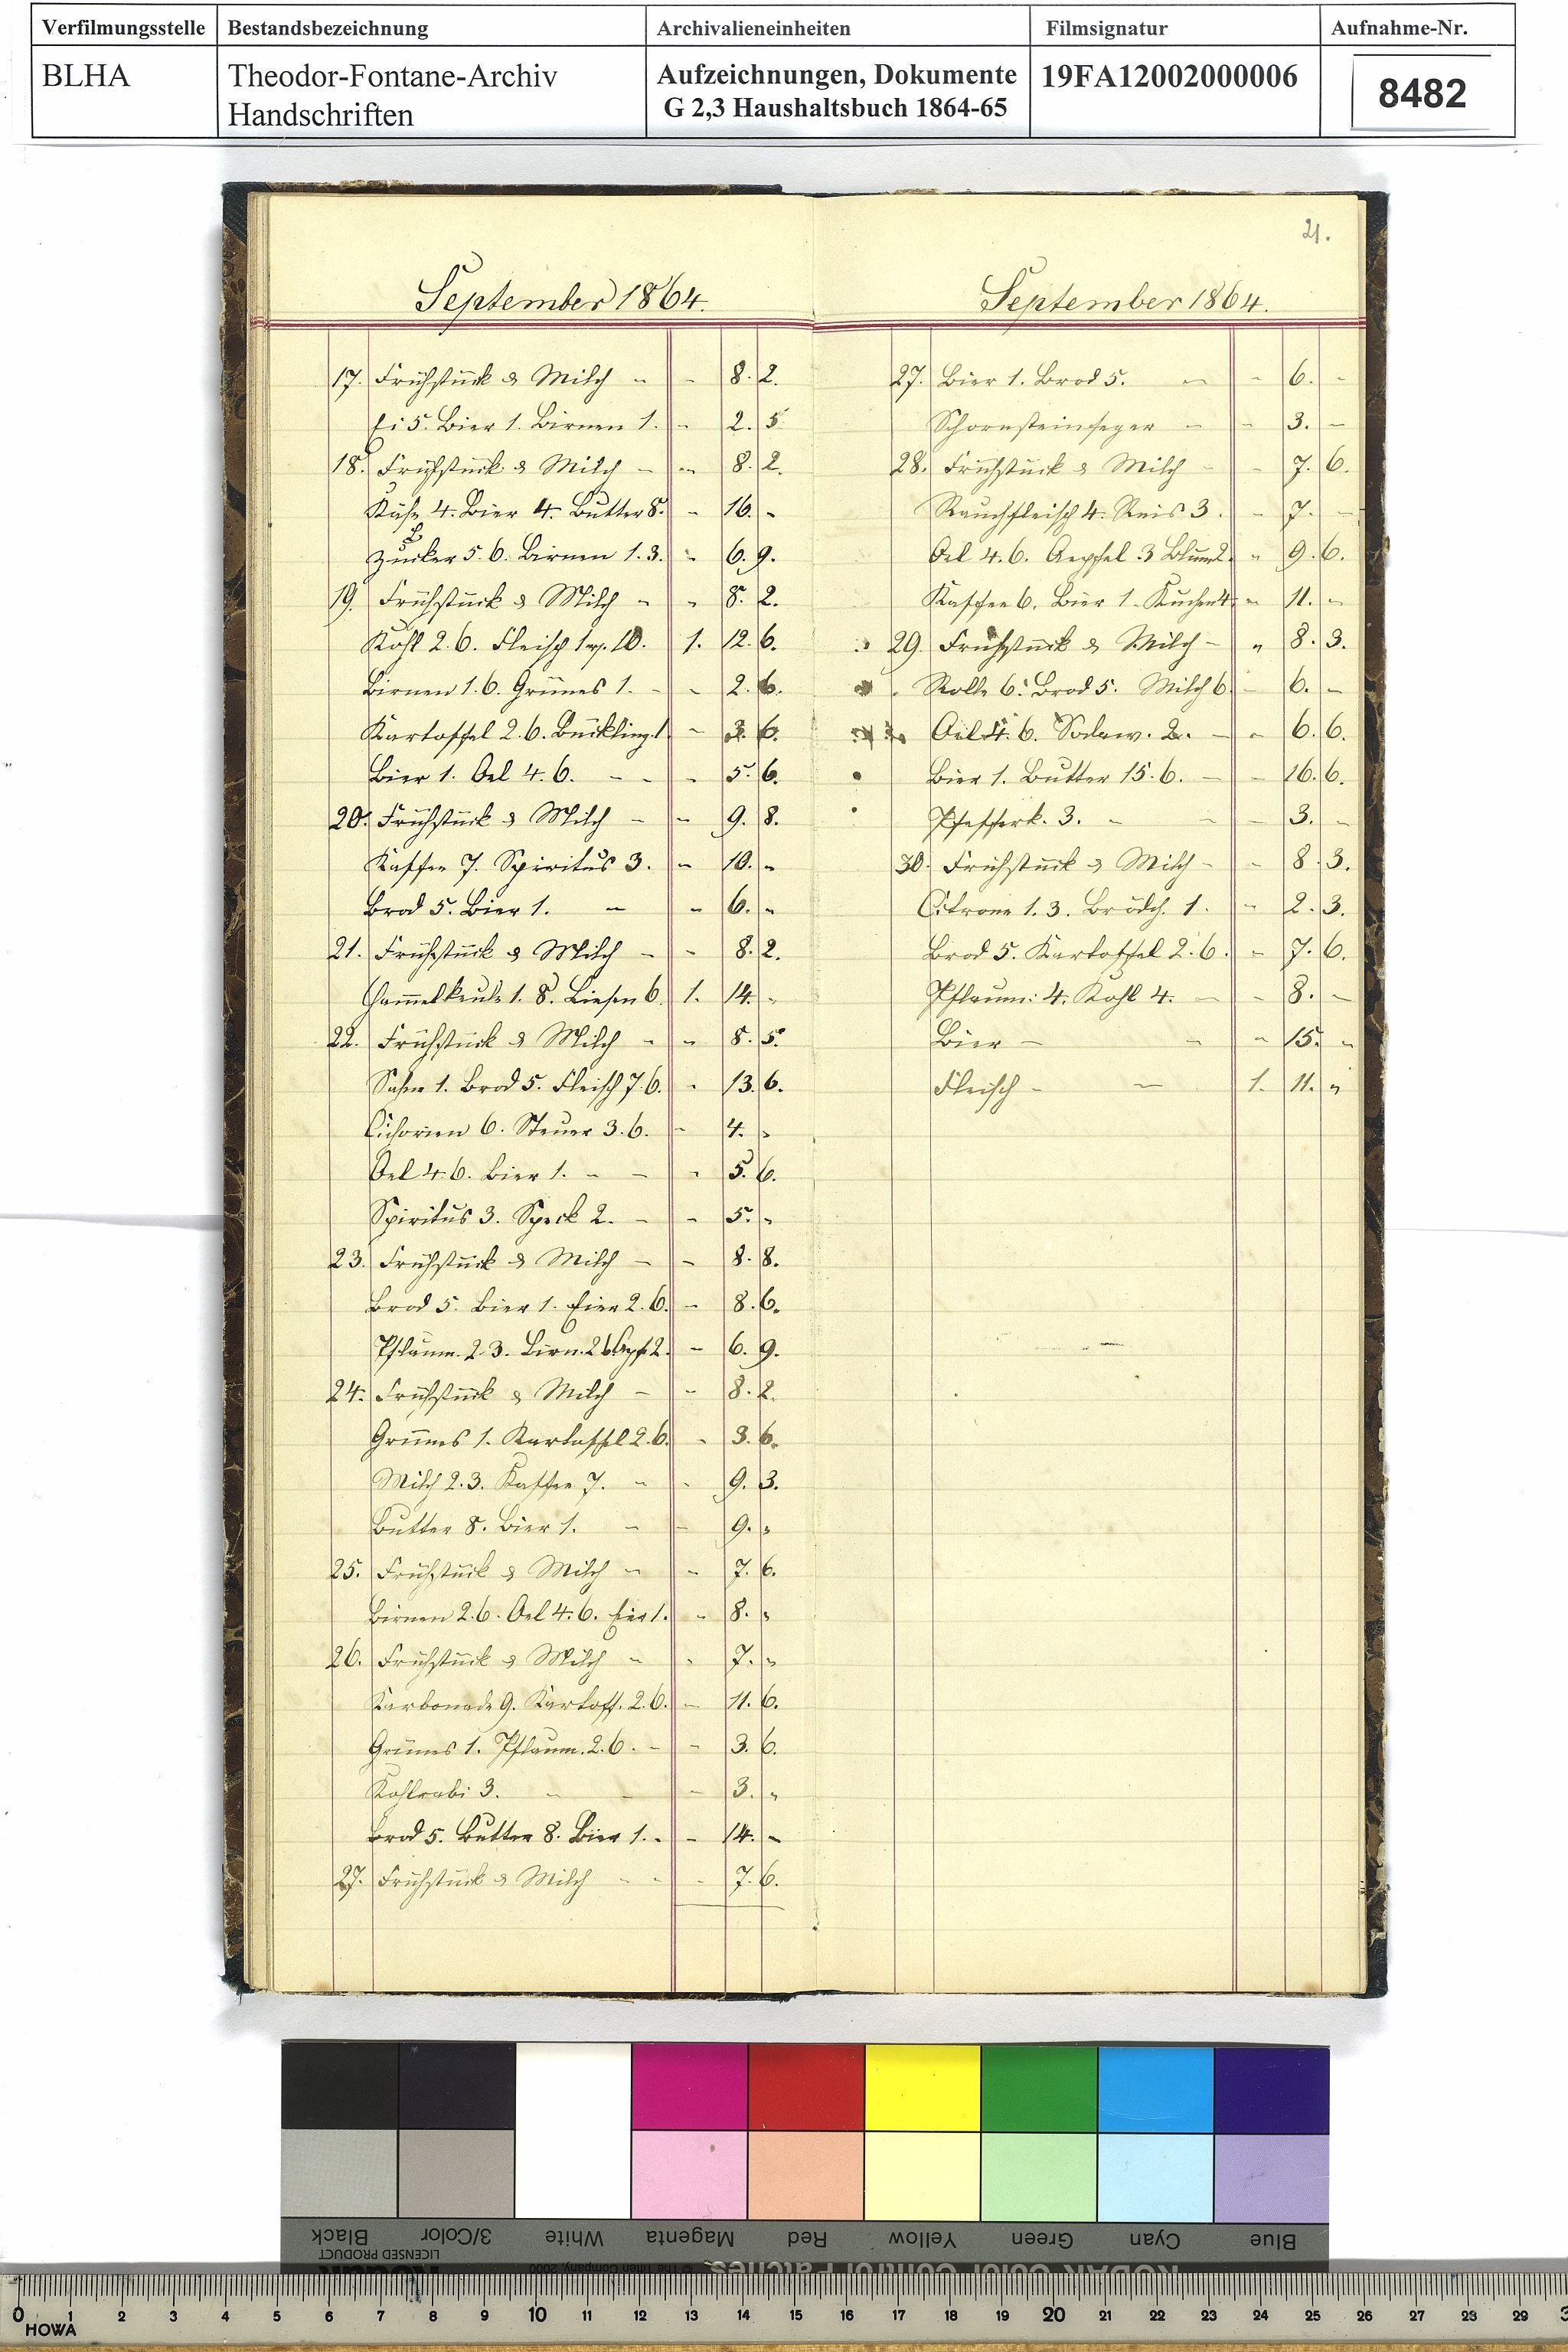 Verfilmungsstelle Bestandsbezeichnung Archivalieneinheiten Filmsignatur Aufnahme-Nr.
BLHA Theodor-Fontane-Archiv Handschriften Aufzeichnungen, Dokumente G 2,3 Haushaltsbuch 1864-65 19FA12002000006 8482
September 1864.
17. Frühstück & Milch - - 8. 2.
Ei 5. Bier 1. Birnen 1. - 2. 5
18. Frühstück & Milch - - 8. 2.
Käse 4. Bier 4. Butter 8. - 16. -
Zucker 5. 6. Birnen 1. 3. - 6. 9.
19. Frühstück & Milch - - 8. 2.
Kohl 2. 6. Fleisch 1 10. 1. 12. 6.
Birnen 1. 6. Grünes 1. - - 2. 6.
Kartoffel 2. 6. Bückling. 1 - 3. 6.
Bier 1. Oel 4. 6. - - - 5. 6.
20. Frühstück & Milch - - 9. 8.
Kaffee 7. Spiritus 3. - 10. -
Brod 5. Bier 1. - - 6. -
21. Frühstück & Milch - - 8. 2.
Hammelkeule 1. 8. Liesen 6. 1. 14. -
22. Frühstück & Milch - - 8. 5.
Sahne 1. Brod 5. Fleisch 7. 6. - 13. 6.
Cichorien 6. Steuer 3. 6. - 4. -
Oel 4. 6. Bier 1. - - - 5. 6.
Spiritus 3. Speck 2. - - 5. -
23. Frühstück & Milch - - 8. 8.
Brod 5. Bier 1. Eier 2. 6. - 8. 6.
Pflaum. 2. 3. Birn. 2 6 Apf. 2. - 6. 9.
24. Frühstück & Milch - - 8. 2.
Grünes 1. Kartoffel 2. 6. - 3. 6.
Milch 2. 3. Kaffee 7. - - 9. 3.
Butter 8. Bier 1. - - 9. -
25. Frühstück & Milch - - 7. 6.
Birnen 2. 6. Oel 4. 6. Eier 1. - 8. -
26. Frühstück & Milch - - 7. -
Karbonade 9. Kartoff. 2. 6. - 11. 6.
Grünes 1. Pflaum. 2. 6. - - 3. 6.
Kohlrabi 3. - - - 3. -
Brod 5. Butter 8. Bier 1. - - 14. -
27. Frühstück & Milch - - - 7. 6.
21.
September 1864.
27. Bier 1. Brod 5. - - 6. -
Schornsteinfeger - - 3. -
28. Frühstück & Milch - - 7. 6.
Rauchfleisch 4. Reis 3. - 7. -
Oel 4. 6. Aepfel 3 Blum 2. - 9. 6.
Kaffee 6. Bier 1. Kuchen 4. - 11. -
29. Frühstück & Milch - - 8. 3.
Rolle 6. Brod 5. Milch 6. - 6. -
Oel 4. 6. Sodaw. 2. - - 6. 6.
Bier 1. Butter 15. 6. - - 16. 6.
Pfefferk. 3. - - - 3. -
30. Frühstück & Milch - - 8. 3.
Citrone 1. 3. Brödch. 1. - 2. 3.
Brod 5. Kartoffel 2. 6. - 7. 6.
Pflaum: 4. Kohl 4. - - 8. -
Bier - - - 15. -
Fleisch - - 1. 11. -
Black 3/Color White Magenta Red Yellow Green Cyan Blue
LICENSED PRODUCT
Kodak © The Tiffen Company, 2000 KODAK Color Control Patches
0 1 2 3 4 5 6 7 8 9 10 11 12 13 14 15 16 17 18 19 20 21 22 23 24 25 26 27 28 29 3
HOWA